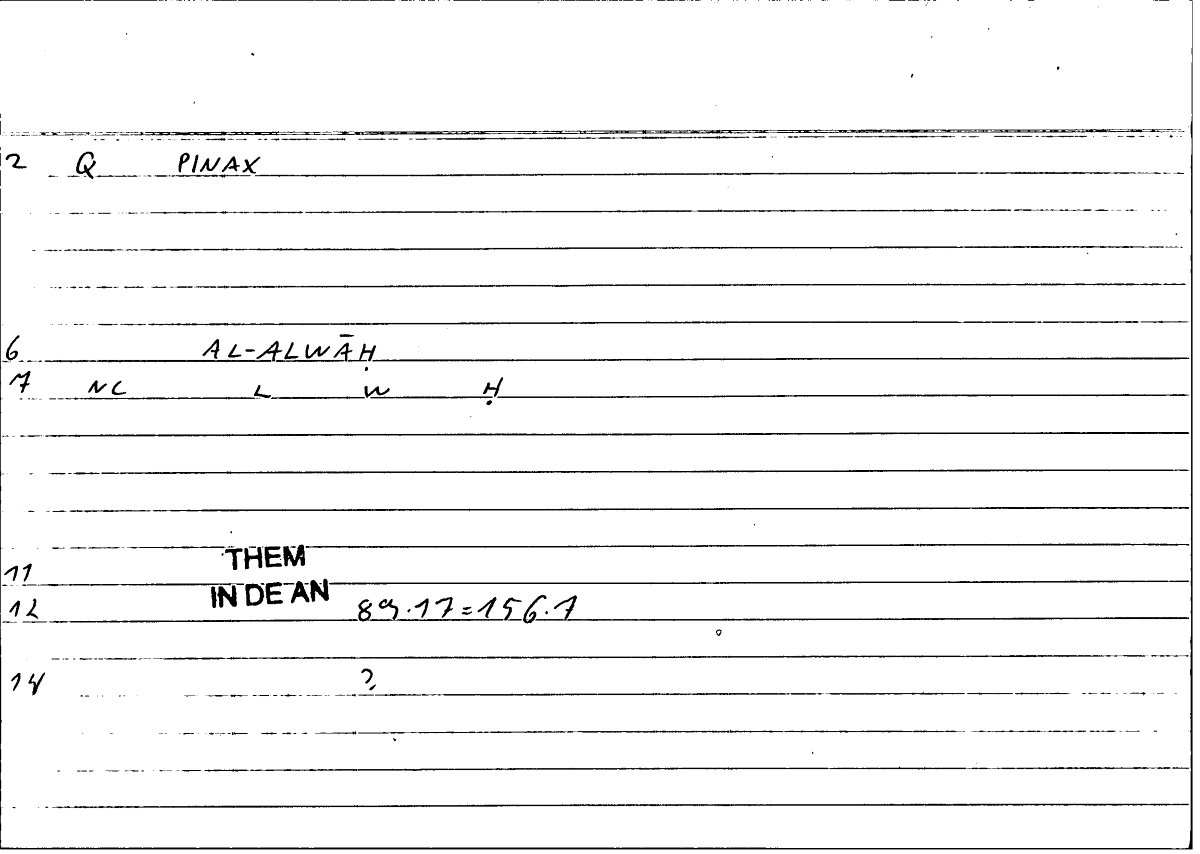 2 Q PINAX
6 AL-ALWĀḤ
7 NC L W Ḥ
11 THEM
12 IN DE AN 89.17=156.1
14 ?